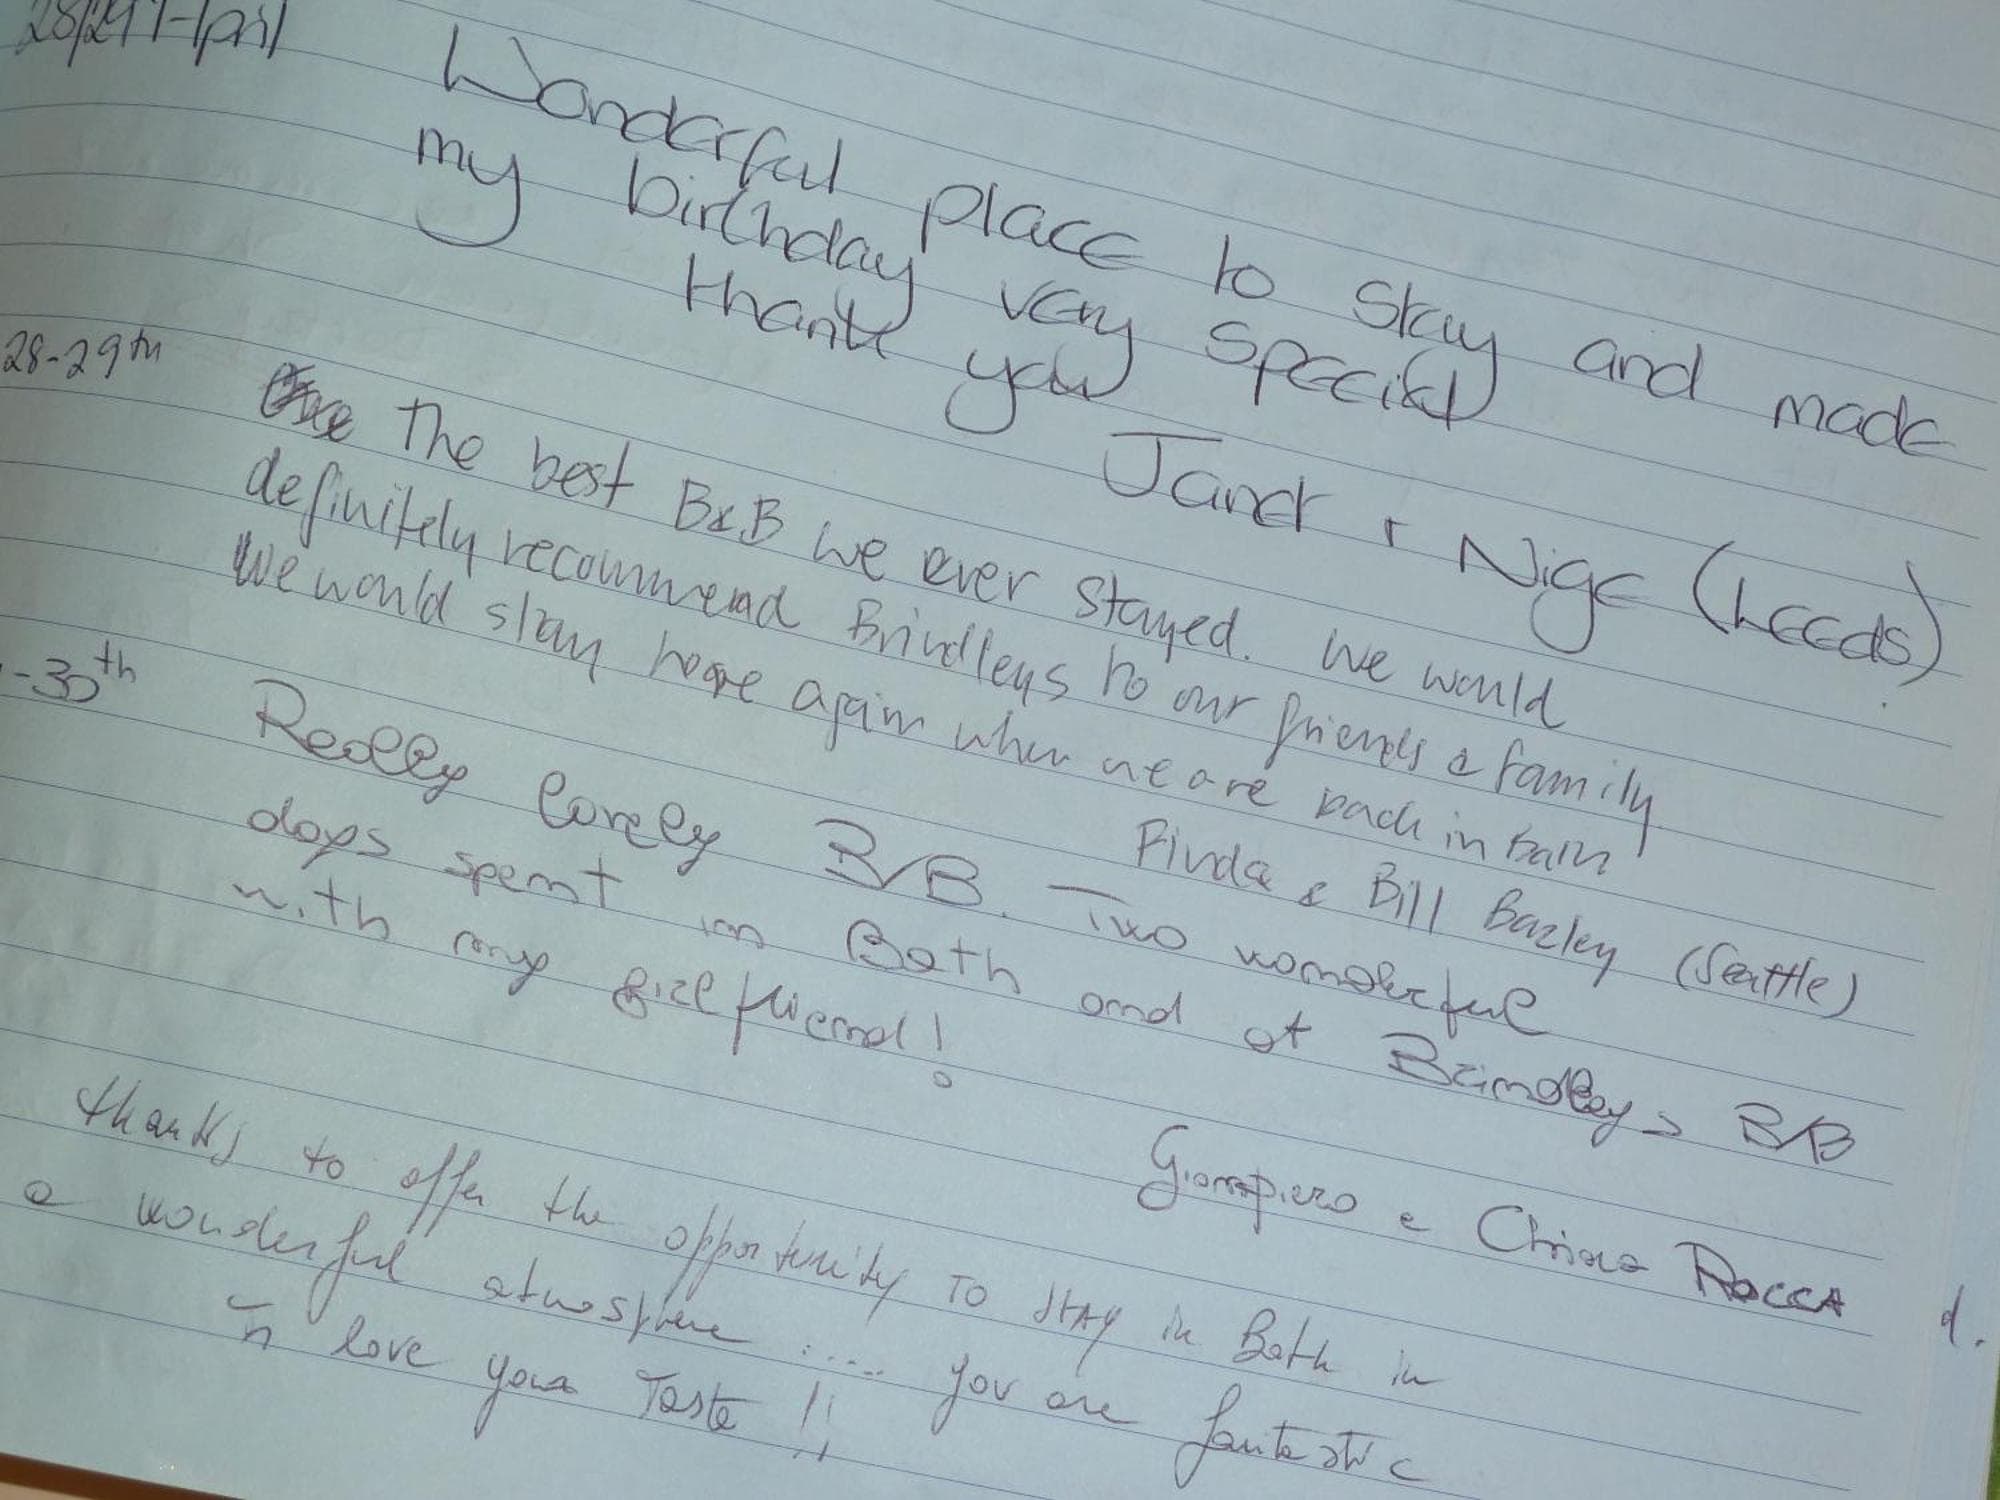 28/29 April
Wonderful place to stay and made
my birthday very special
thank you
Janet + Nige (Leeds)
28-29th
The best B&B we ever stayed. We would
definitely recommend Brindleys to our friends & family
We would stay here again when we are back in Bath!
Pinda & Bill Bazley (Seattle)
-30th
Really lovely B/B. Two wonderful
days spent in Bath and at Brindleys B/B
with my girlfriend!
Giampiero e Chiara ROCCA
thanks to offer the opportunity to stay in Bath in
a wonderful atmosphere ..... you are fantastic
love your taste !!
d.